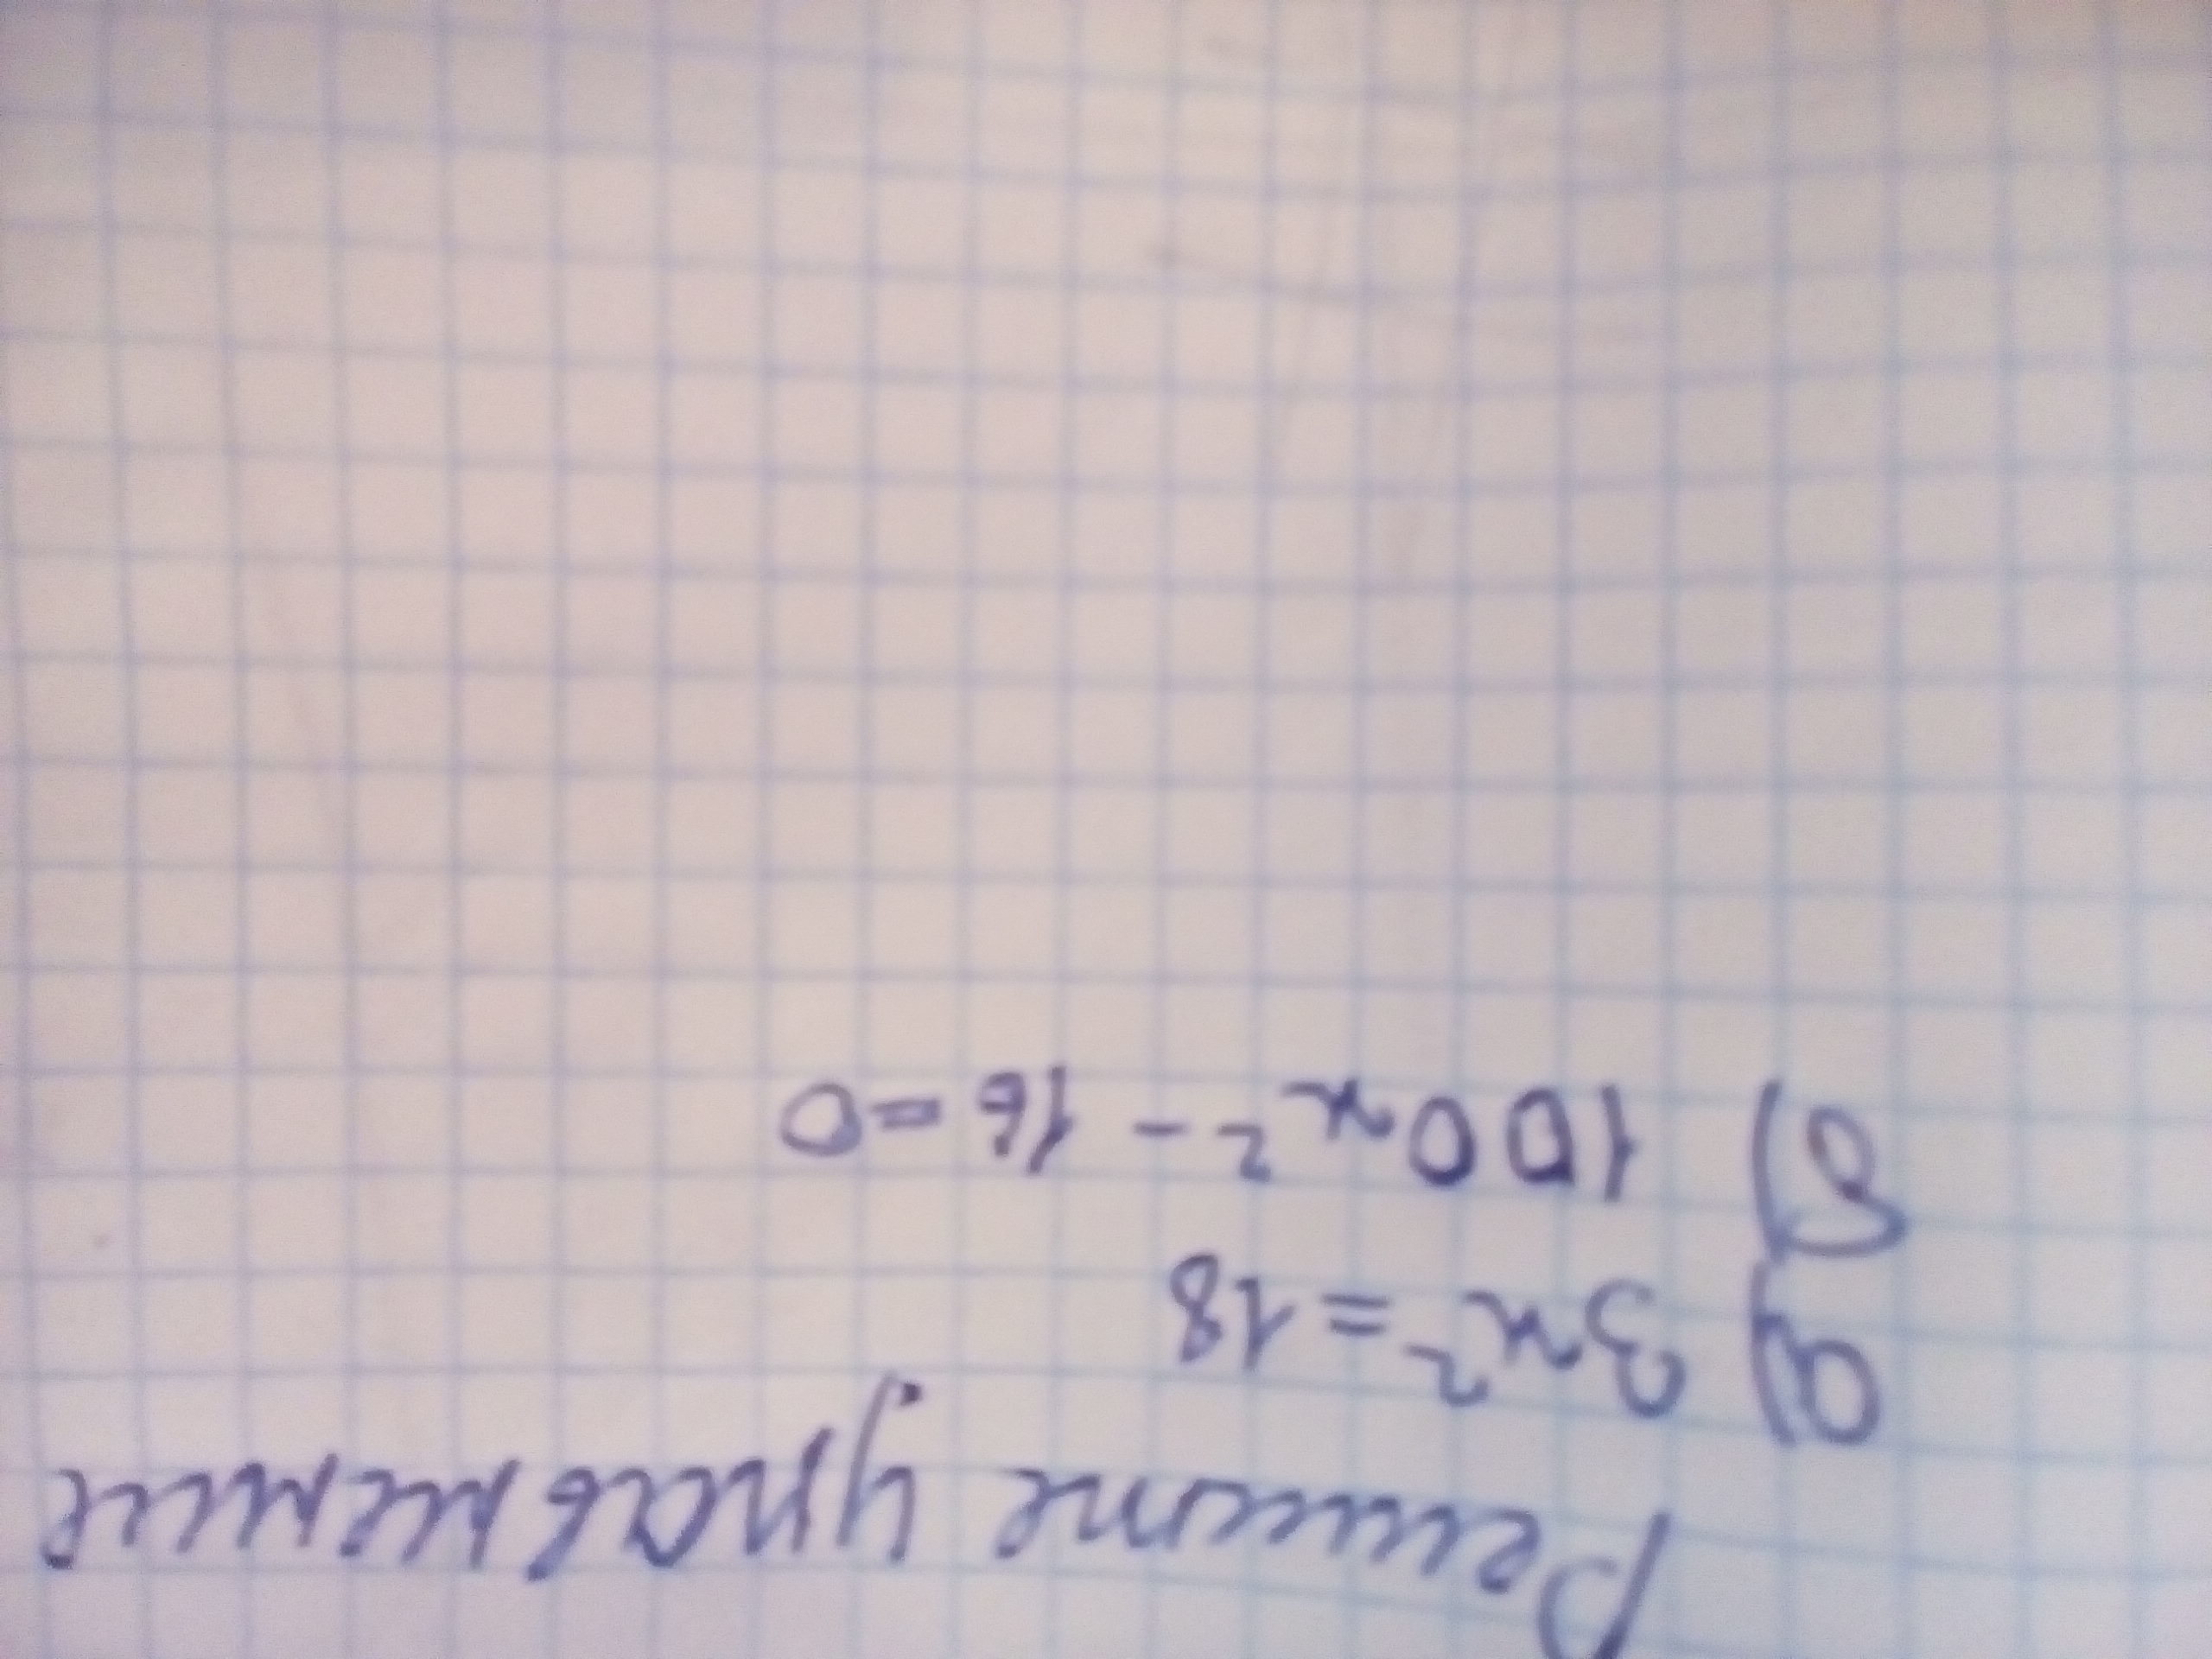 Решите уравнение
а) 3x² = 18
б) 100x² - 16 = 0